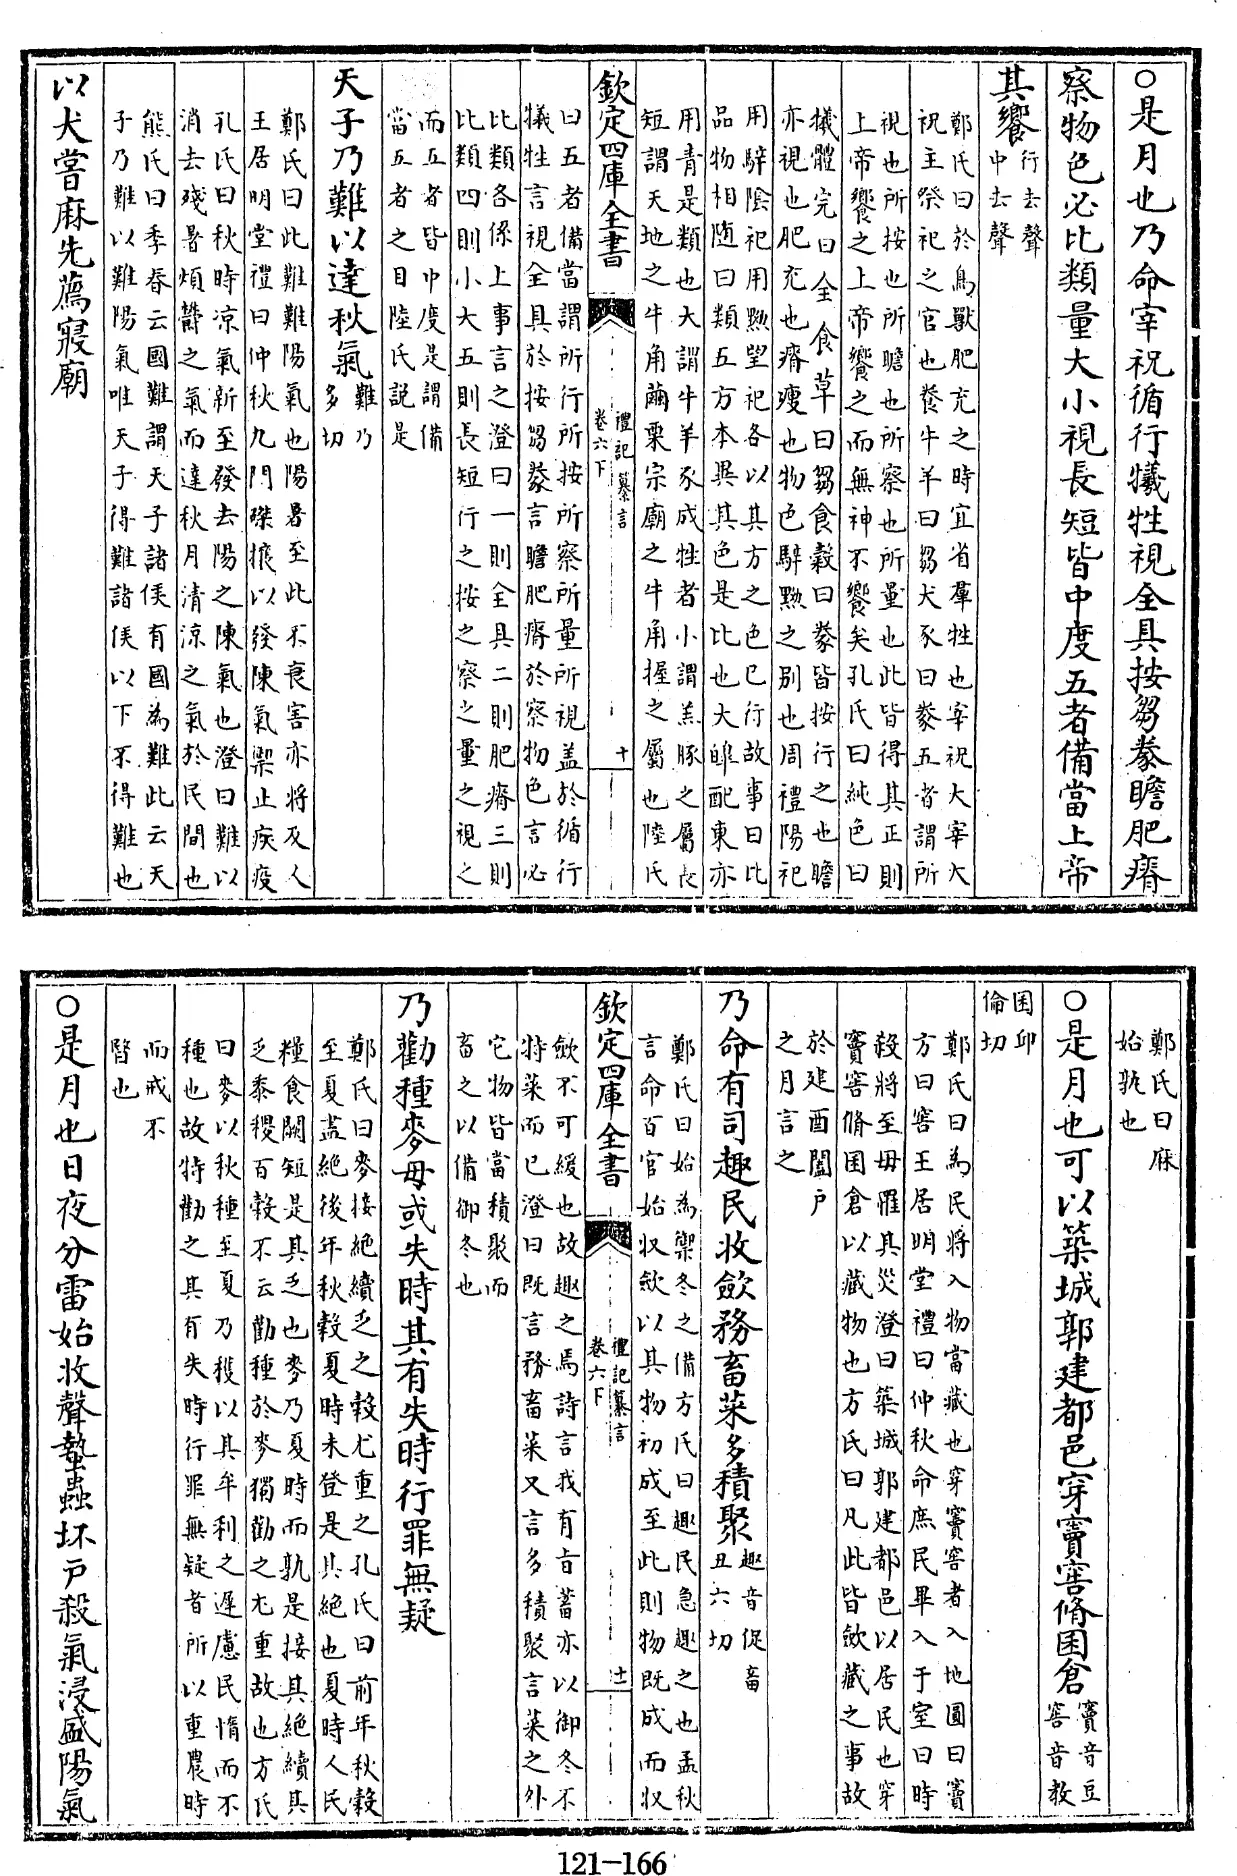 ○是月也乃命宰祝循行犧牲視全具按芻豢瞻肥瘠
察物色必比類量大小視長短皆中度五者備當上帝
其饗行去聲
中去聲
鄭氏曰於鳥獸肥充之時宜省羣牲也宰祝大宰大
祝主祭祀之官也養牛羊曰芻犬豕曰豢五者謂所
視也所按也所瞻也所察也所量也此皆得其正則
上帝饗之上帝饗之而無神不饗矣孔氏曰純色曰
犧體完曰全食草曰芻食穀曰豢皆按行之也瞻
亦視也肥充也瘠瘦也物色騂黝之别也周禮陽祀
用騂陰祀用黝望祀各以其方之色已行故事曰比
品物相随曰類五方本異其色是比也大皥配東亦
用青是類也大謂牛羊豕成牲者小謂羔豚之屬長
短謂天地之牛角繭栗宗廟之牛角握之屬也陸氏
欽定四庫全書
禮記纂言
卷六下
十
曰五者備當謂所行所按所察所量所視盖於循行
犧牲言視全具於按芻豢言瞻肥瘠於察物色言必
比類各係上事言之澄曰一則全具二則肥瘠三則
比類四則小大五則長短行之按之察之量之視之
而五者皆中度是謂備
當五者之目陸氏説是
天子乃難以達秋氣難乃
多切
鄭氏曰此難難陽氣也陽暑至此不衰害亦將及人
王居明堂禮曰仲秋九門磔攘以發陳氣禦止疾疫
孔氏曰秋時凉氣新至發去陽之陳氣也澄曰難以
消去殘暑煩鬱之氣而達秋月清涼之氣於民間也
熊氏曰季春云國難謂天子諸侯有國為難此云天
子乃難以難陽氣唯天子得難諸侯以下不得難也
以犬嘗麻先薦寢廟
鄭氏曰麻
始孰也
○是月也可以築城郭建都邑穿竇窖脩囷倉竇音豆
窖音教
囷邱
倫切
鄭氏曰為民將入物當藏也穿竇窖者入地圓曰竇
方曰窖王居明堂禮曰仲秋命庶民畢入于室曰時
殺將至毋罹其災澄曰築城郭建都邑以居民也穿
竇窖脩囷倉以藏物也方氏曰凡此皆斂藏之事故
於建酉闔户
之月言之
乃命有司趣民收斂務畜菜多積聚趣音促畜
丑六切
鄭氏曰始為禦冬之備方氏曰趣民急趣之也孟秋
言命百官始收斂以其物初成至此則物既成而收
欽定四庫全書
禮記纂言
卷六下
十一
斂不可緩也故趣之焉詩言我有㫖蓄亦以御冬不
特菜而已澄曰既言務畜菜又言多積聚言菜之外
它物皆當積聚而
畜之以備御冬也
乃勸種麥毋或失時其有失時行罪無疑
鄭氏曰麥接絶續乏之穀尤重之孔氏曰前年秋穀
至夏盖絶後年秋穀夏時未登是其絶也夏時人民
糧食闕短是其乏也麥乃夏時而孰是接其絶續其
乏黍稷百穀不云勸種於麥獨勸之尤重故也方氏
曰麥以秋種至夏乃穫以其牟利之遲慮民惰而不
種也故特勸之其有失時行罪無疑者所以重農時
而戒不
昬也
○是月也日夜分雷始收聲蟄蟲坏戸殺氣浸盛陽氣
121-166